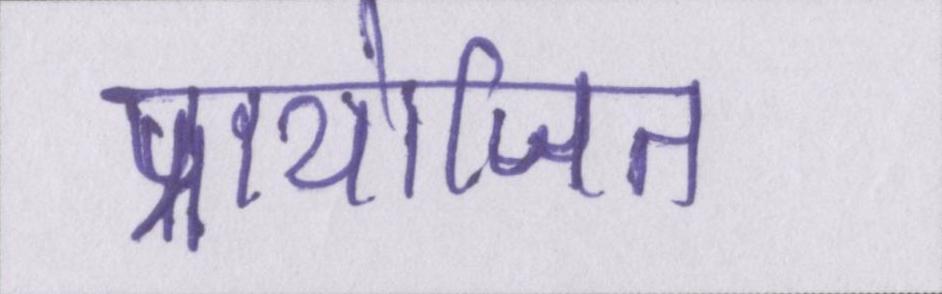 प्रायोजित